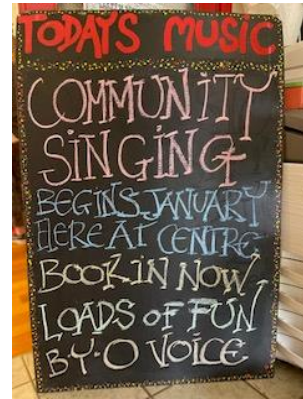 TODAYS MUSIC
COMMUNITY
SINGING
BEGINS JANUARY
HERE AT CENTRE
BOOK IN NOW
LOADS OF FUN
B·Y·O VOICE